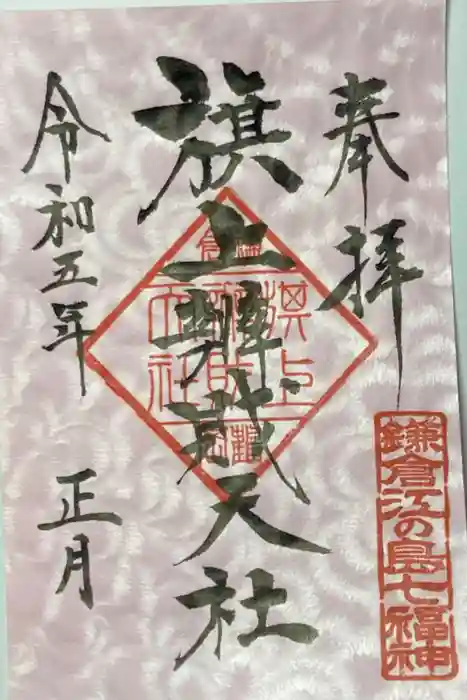 奉拝
旗上辨戝天社
令和五年 正月
鎌倉江の島七福神